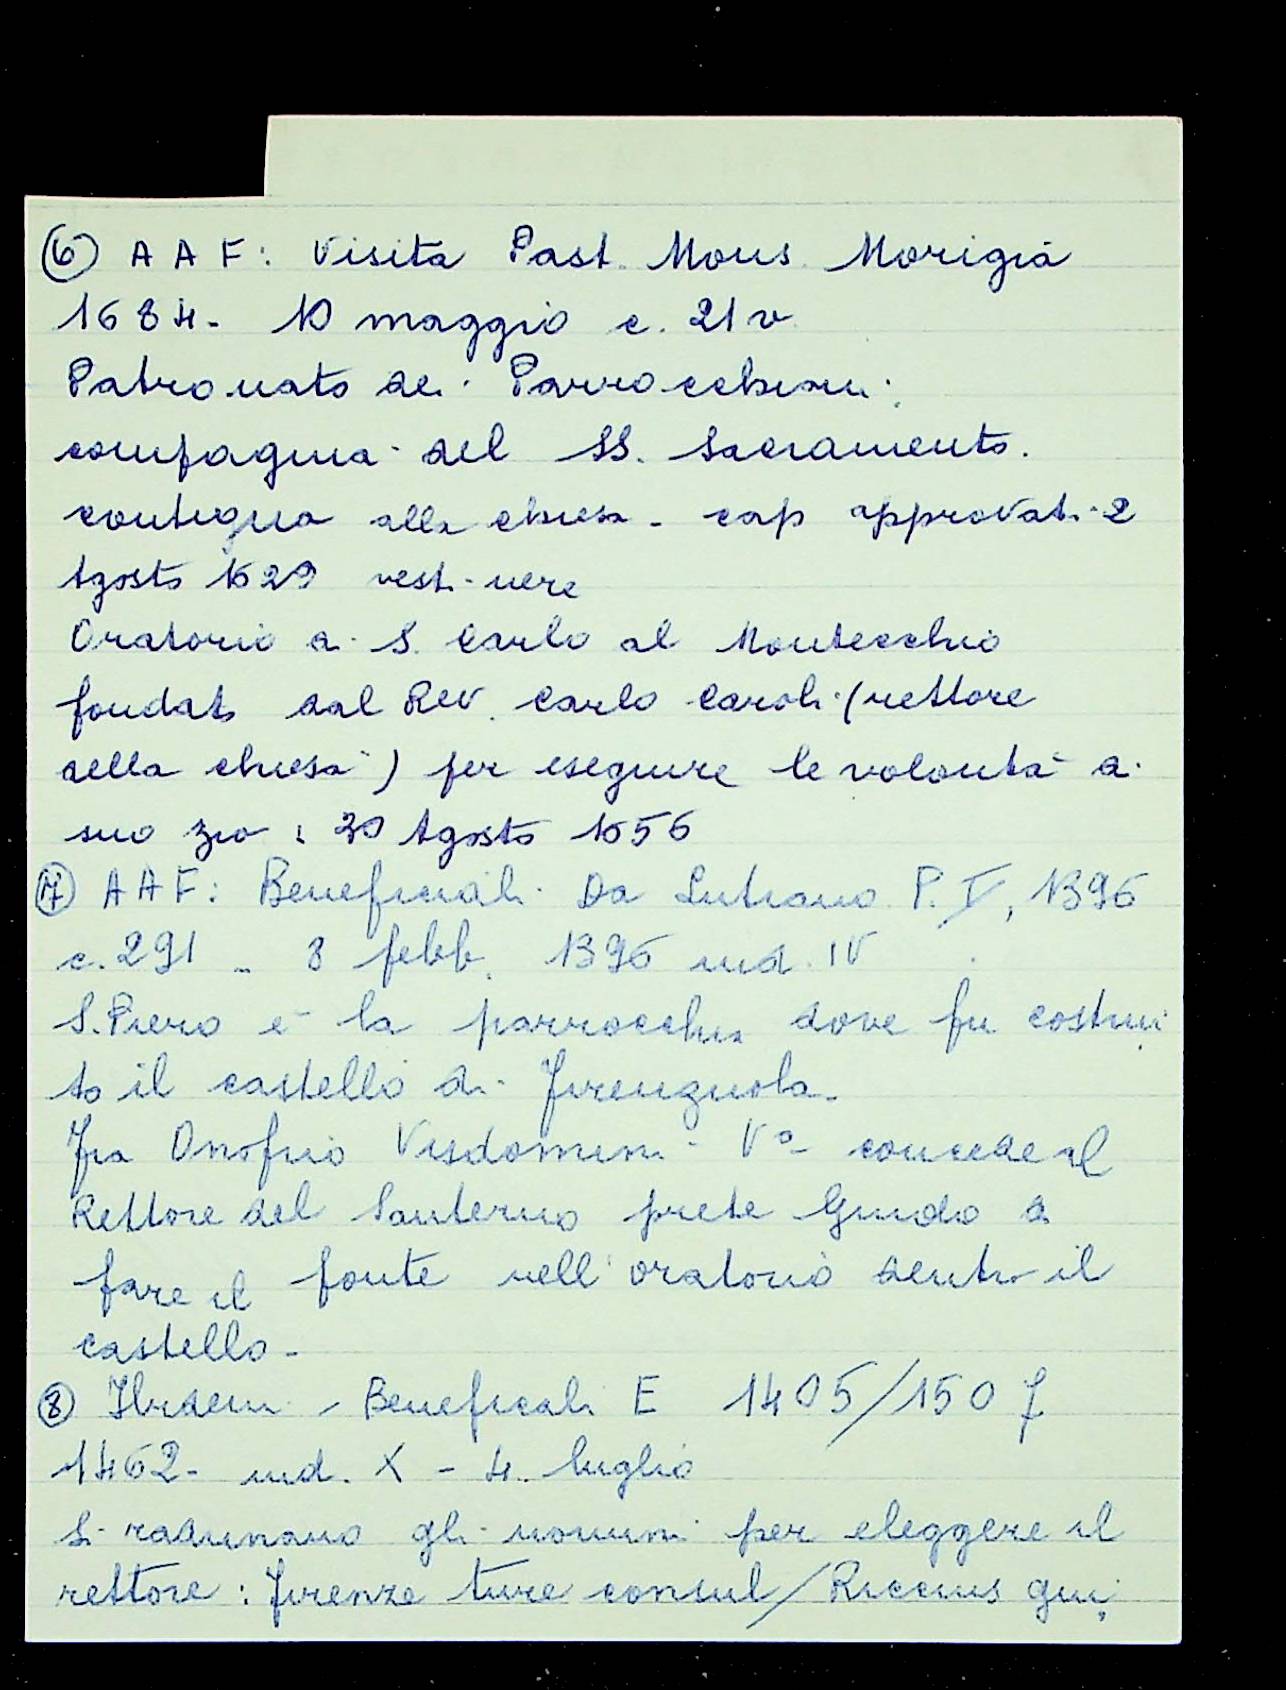 ⑥ A A F: Visita Past. Mons. Morigia
1684 - 10 maggio c. 21v
Patronato dei Parrocchiani
compagnia del SS. Sacramento.
contigua alla chiesa - cap approvati 2
Agosto 1629 vesti nere
Oratorio di S. Carlo al Montecchio
fondato dal Rev. Carlo Caroli (rettore
della chiesa) per eseguire le volontà di
suo zio: 30 Agosto 1656
⑦ A A F: Beneficiali Da Lutiano P. V, 1396
c. 291 - 8 febb. 1396 ind. IV
S. Piero è la parrocchia dove fu costrui
to il castello di Firenzuola.
Fra Onofrio Visdomini Vº concede al
Rettore del Santerno prete Guido di
fare il fonte nell'oratorio dentro il
castello -
⑧ Ibidem - Beneficali E 1405/1507
1462 - ind. X - 4. luglio
Si radunano gli uomini per eleggere il
rettore: Firenze ture consul/Riccius gui